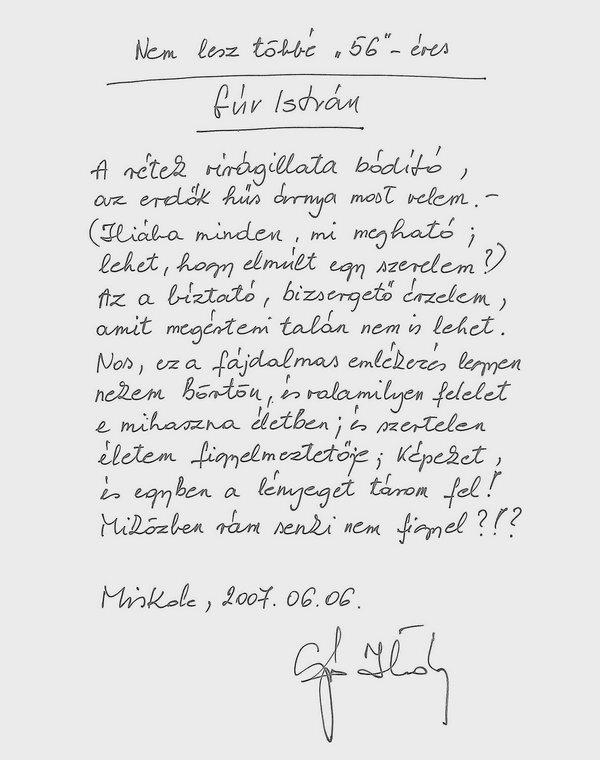 Nem lesz többé „56"-éves
Fúr István
A rétek virágillata bódító,
az erdők hűs árnya most velem.-
(Hiába minden, mi megható;
lehet, hogy elmúlt egy szerelem?)
Az a bíztató, bizsergető érzelem,
amit megérteni talán nem is lehet.
Nos, ez a fájdalmas emlékezés legyen
nekem Börtön, és valamilyen felelet
e mihaszna életben; és szertelen
életem figyelmeztetője; Képeket,
és egyben a lényeget tárom fel!
Miközben rám senki nem figyel?!?
Miskolc, 2007.06.06.